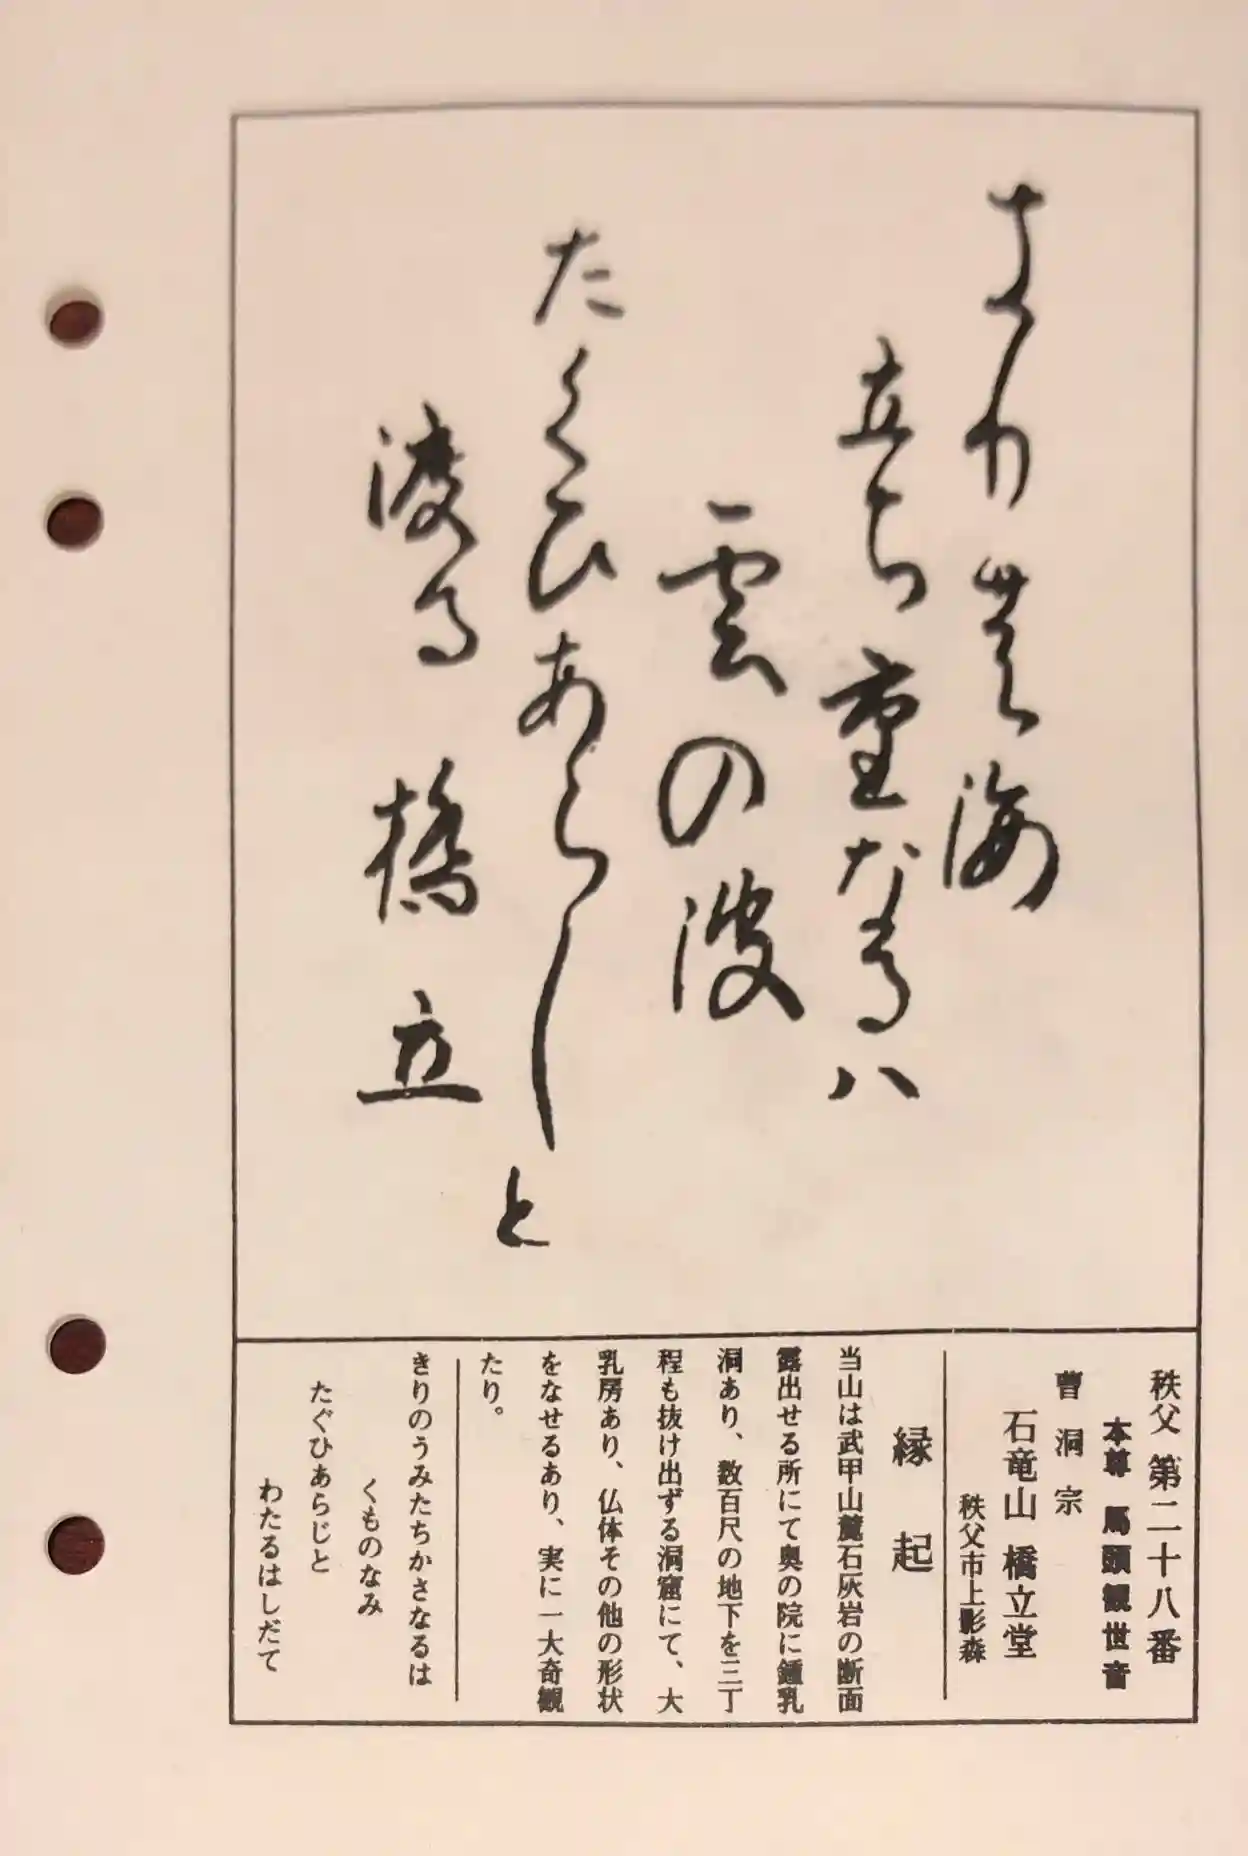 きり乃海
立ち重なるハ
雲の波
たくひあらしと
渡る橋立
秩父 第二十八番
本尊 馬頭観世音
曹洞宗
石竜山 橋立堂
秩父市上影森
縁起
当山は武甲山麓石灰岩の断面
露出せる所にて奥の院に鍾乳
洞あり、数百尺の地下を三丁
程も抜け出ずる洞窟にて、大
乳房あり、仏体その他の形状
をなせるあり、実に一大奇観
たり。
きりのうみたちかさなるは
くものなみ
たぐひあらじと
わたるはしだて